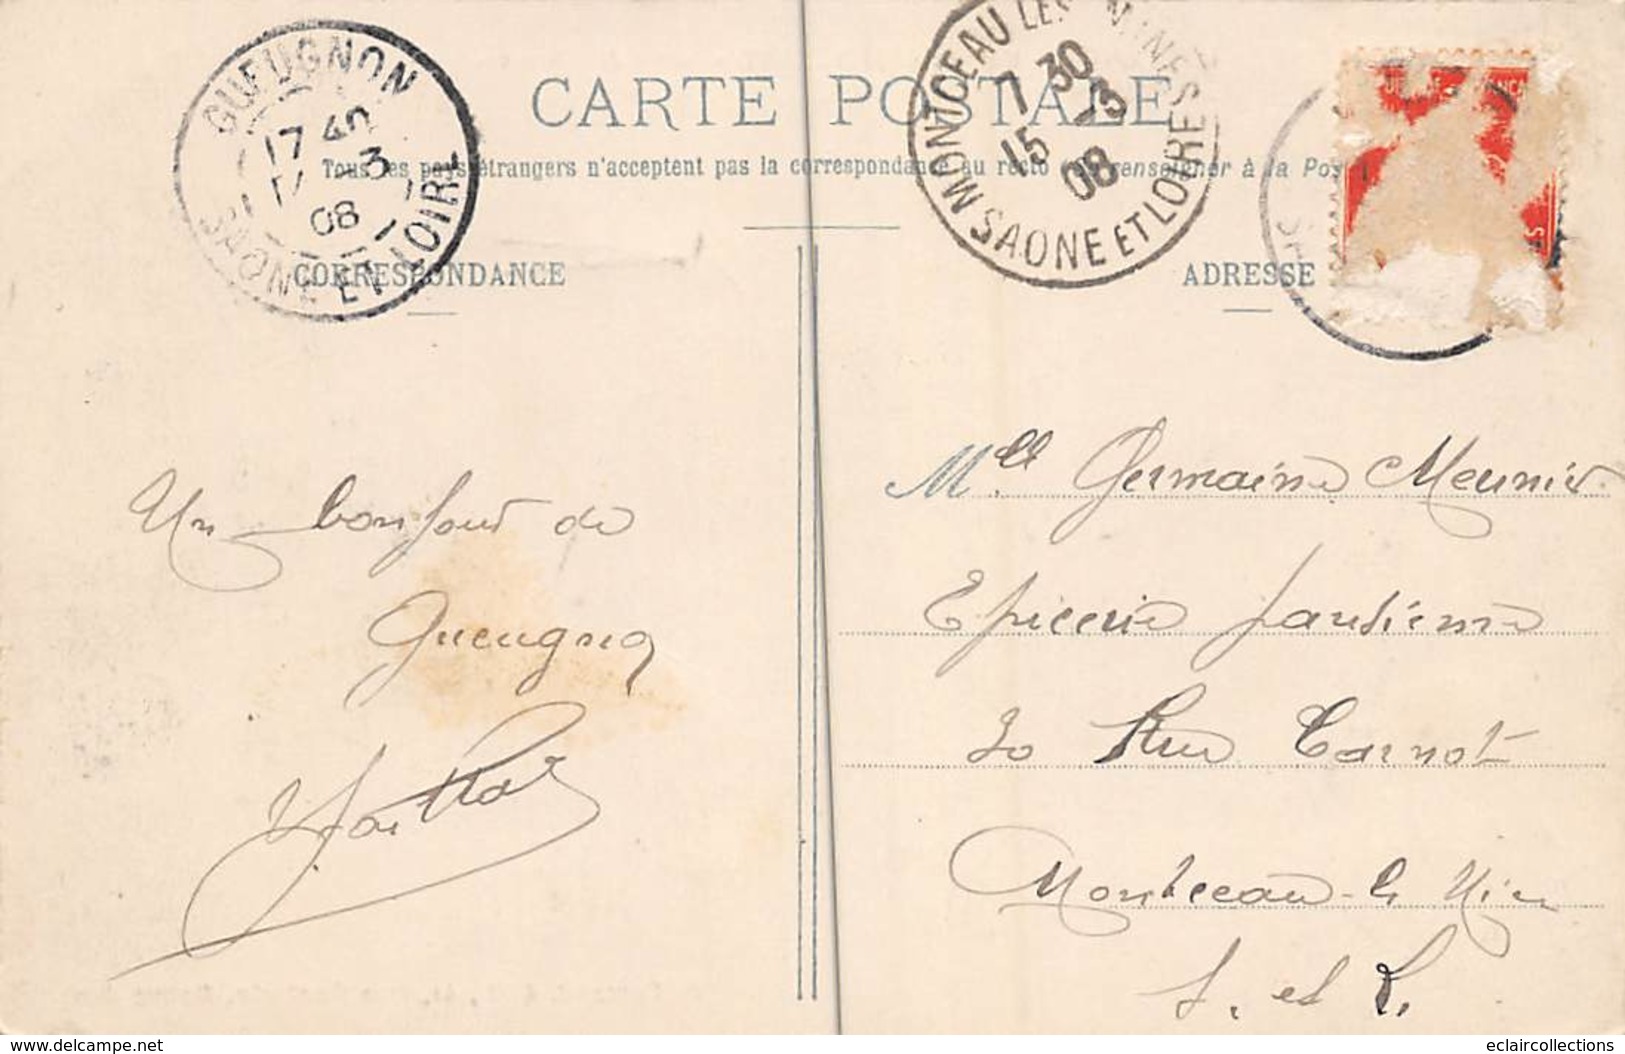 GUEUGNON
17 40
14 -3
08
SAONE ET LOIRE
MONTCEAU LES MINES
7 30
15 -3
08
SAONE ET LOIRE
CARTE POSTALE
Tous les pays étrangers n'acceptent pas la correspondance au recto
renseigner à la Pos
CORRESPONDANCE
ADRESSE
Un bonjour de
Gueugnon
Mlle Germaine Meunier
Epicerie parisienne
30 Rue Carnot
Montceau-les Mines
S. et L.
delcampe.net
eclaircollections